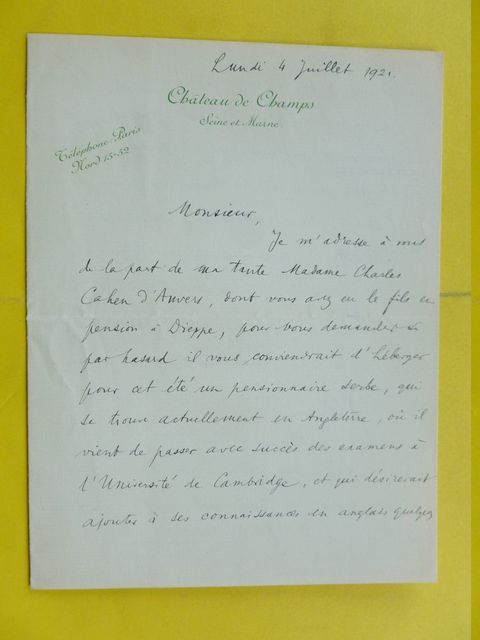 Lundi 4 Juillet 1921.
Château de Champs
Seine et Marne
Téléphone-Paris
Nord 15-32
Monsieur,
Je m'adresse à vous
de la part de ma tante Madame Charles
Cahen d'Anvers, dont vous avez eu le fils en
pension à Dieppe, pour vous demander si
par hasard il vous conviendrait d'héberger
pour cet été un pensionnaire serbe, qui
se trouve actuellement en Angleterre, où il
vient de passer avec succès des examens à
l'Université de Cambridge, et qui désirerait
ajouter à ses connaissances en anglais quelques